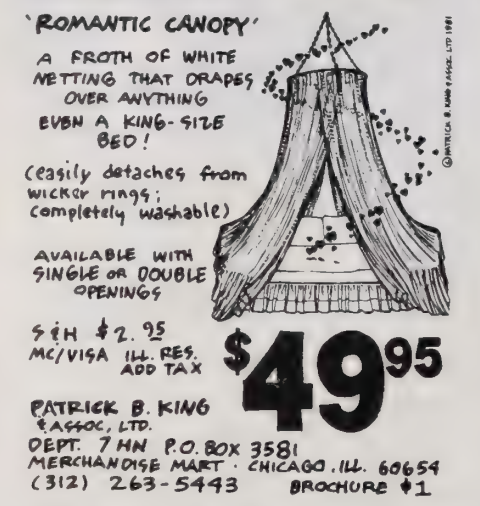 'ROMANTIC CANOPY'
A FROTH OF WHITE
NETTING THAT DRAPES
OVER ANYTHING
EVEN A KING-SIZE
BED!
(easily detaches from
wicker rings;
completely washable)
AVAILABLE WITH
SINGLE OR DOUBLE
OPENINGS
S & H $2.95
MC/VISA ILL. RES.
ADD TAX
$49.95
PATRICK B. KING
& ASSOC, LTD.
DEPT. 7 HN P.O. BOX 3581
MERCHANDISE MART · CHICAGO, ILL. 60654
(312) 263-5443 BROCHURE $1
© PATRICK B. KING & ASSOC. LTD 1981